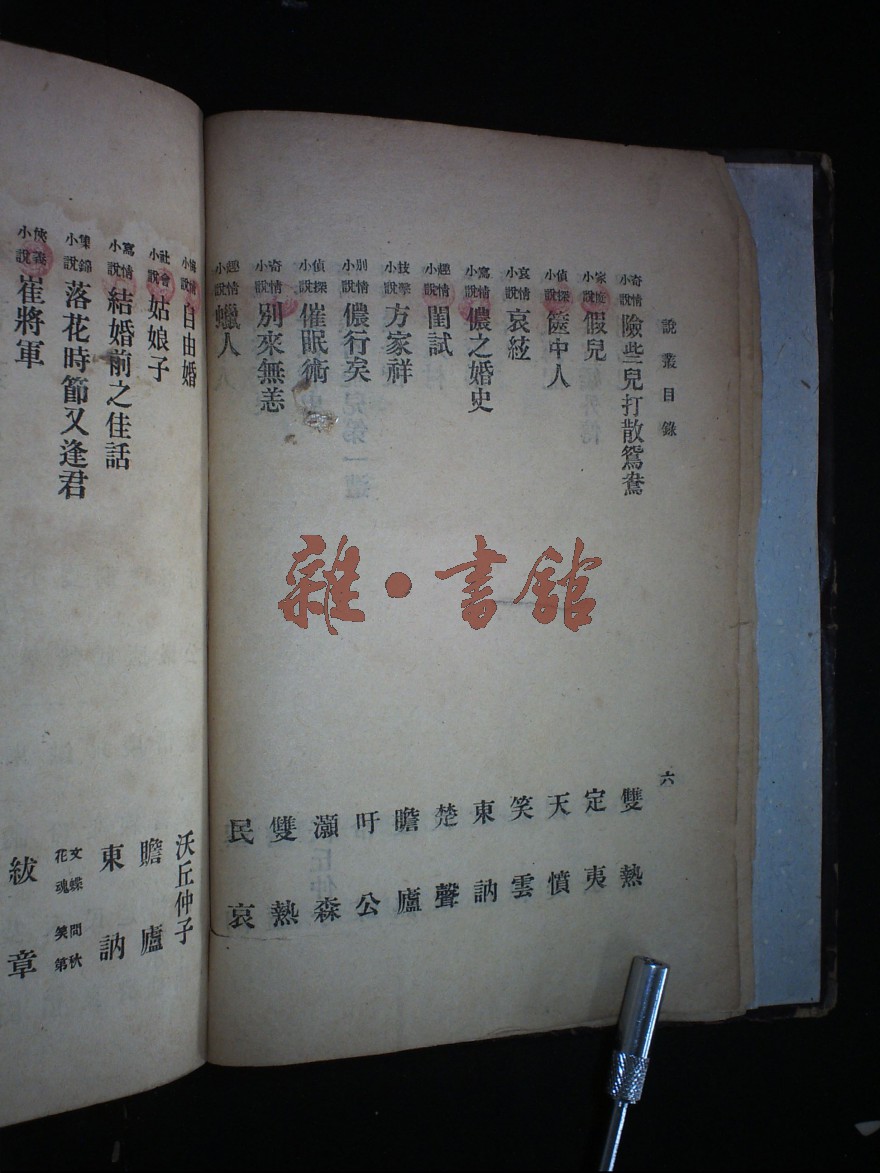 說叢目錄 六
奇情小說 險些兒打散鴛鴦 雙熱
家庭小說 假兒 定夷
偵探小說 篋中人 天憤
哀情小說 哀絃 笑雲
寫情小說 儂之婚史 東訥
趣情小說 閨試 楚聲
技擊小說 方家祥 瞻廬
別情小說 儂行矣 吁公
偵探小說 催眠術 灝森
奇情小說 別來無恙 雙熱
趣情小說 蠟人 民哀
小說 自由婚 沃丘仲子
社會小說 姑娘子 瞻廬
寫情小說 結婚前之佳話 東訥
集錦小說 落花時節又逢君 文蝶 花魂 問秋 笑第
俠義小說 崔將軍 紱章
雜·書館